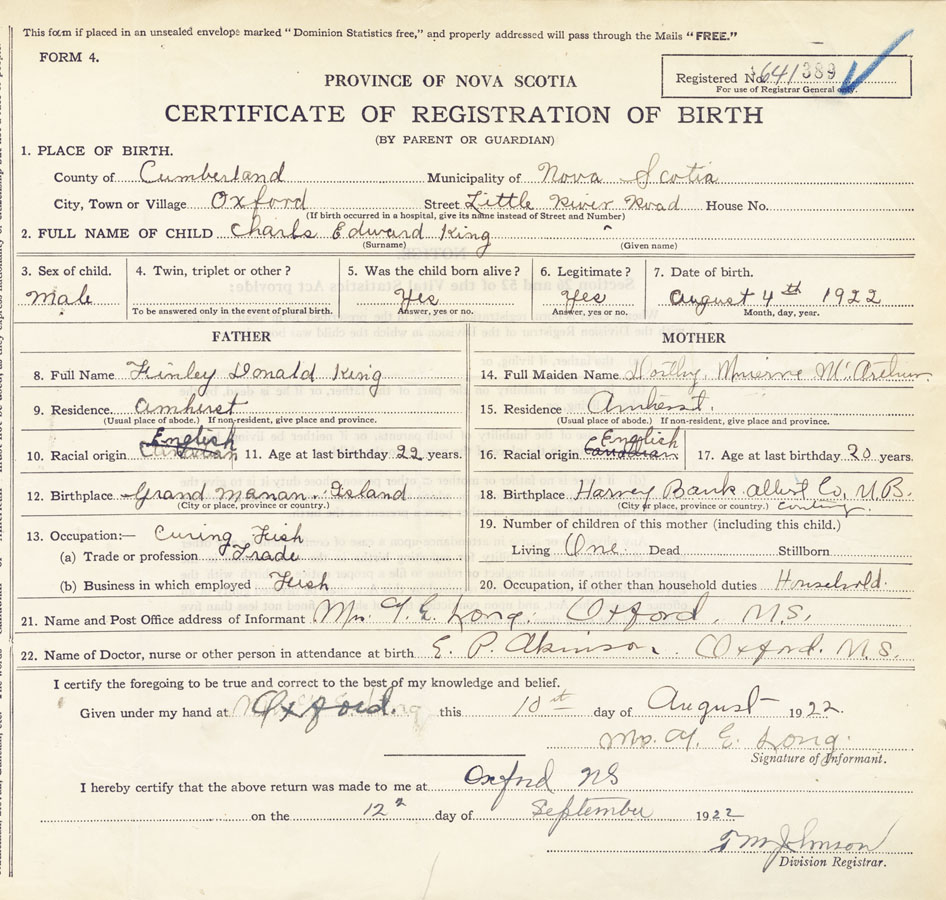 This form if placed in an unsealed envelope marked "Dominion Statistics free," and properly addressed will pass through the Mails "FREE."
FORM 4.
Registered No. 641389
For use of Registrar General only.
PROVINCE OF NOVA SCOTIA
CERTIFICATE OF REGISTRATION OF BIRTH
(BY PARENT OR GUARDIAN)
1. PLACE OF BIRTH.
County of Cumberland Municipality of Nova Scotia
City, Town or Village Oxford Street Little River Road House No.
(If birth occurred in a hospital, give its name instead of Street and Number)
2. FULL NAME OF CHILD Charls Edward King
(Surname) (Given name)
3. Sex of child. 4. Twin, triplet or other? 5. Was the child born alive? 6. Legitimate? 7. Date of birth.
Male Yes Yes August 4th 1922
To be answered only in the event of plural birth. Answer, yes or no. Answer, yes or no. Month, day, year.
FATHER MOTHER
8. Full Name Finley Donald King 14. Full Maiden Name
9. Residence. Amherst 15. Residence Amherst.
(Usual place of abode.) If non-resident, give place and province. (Usual place of abode.) If non-resident, give place and province.
English English
10. Racial origin Canadian 11. Age at last birthday 22 years. 16. Racial origin Canadian 17. Age at last birthday 20 years.
12. Birthplace Grand Manan Island 18. Birthplace Harvey Bank Albert Co, N.B.
(City or place, province or country.) (City or place, province or country.)
13. Occupation:— Curing Fish 19. Number of children of this mother (including this child.)
(a) Trade or profession Trade Living One Dead Stillborn
(b) Business in which employed Fish 20. Occupation, if other than household duties Household.
21. Name and Post Office address of Informant Mrs. E. Long. Oxford, N.S.
22. Name of Doctor, nurse or other person in attendance at birth E. P. Akinson. Oxford. N.S.
I certify the foregoing to be true and correct to the best of my knowledge and belief.
Given under my hand at Oxford. this 10th day of August 1922.
E. Long.
Signature of Informant.
I hereby certify that the above return was made to me at Oxford NS
on the 12 day of September 1922
Johnson
Division Registrar.